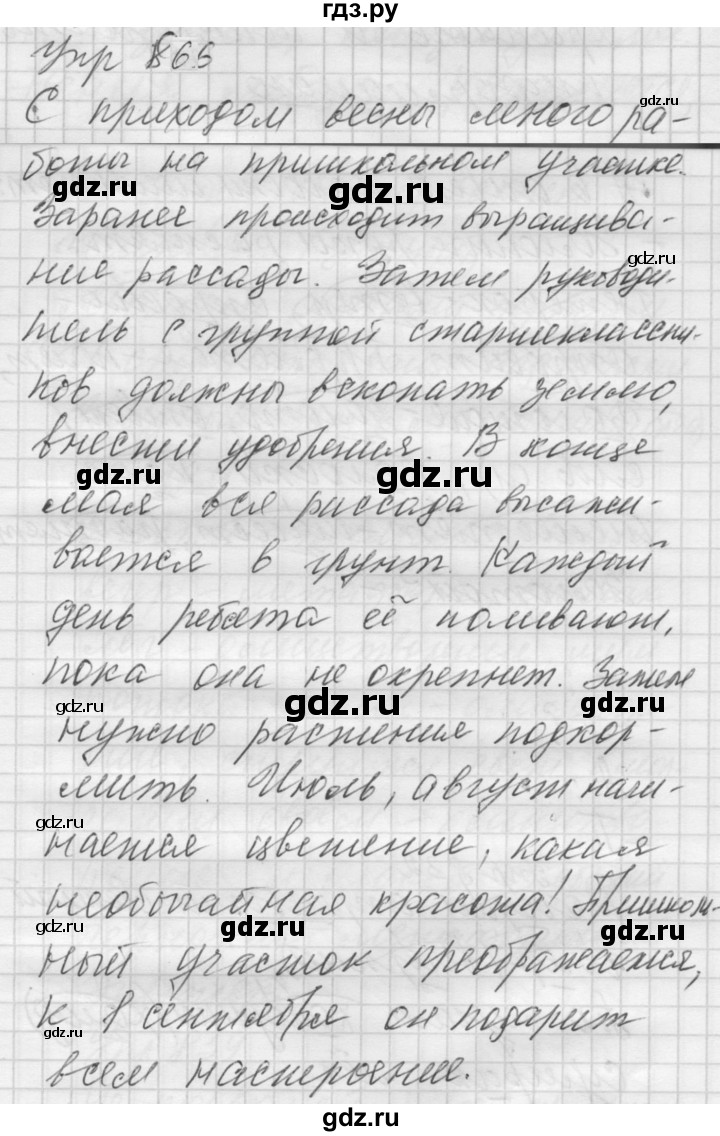 гдз.ру
Упр 865
С приходом весны много ра-
боты на пришкальном участке.
Заранее происходит выращива-
ние рассады. Затем руководи-
тель с группой старшеклассни-
ков должны вскопать землю,
внести удобрения. В конце
мая вся рассада высажи-
вается в грунт. Каждый
день ребята её поливают,
пока она не окрепнет. Затем
нужно растения подкор-
мить. Июль, август начи-
нается цветение, какая
необычайная красота! Пришколь-
ный участок преображается,
к 1 сентября он подарит
всем настроение.
gdz.ru